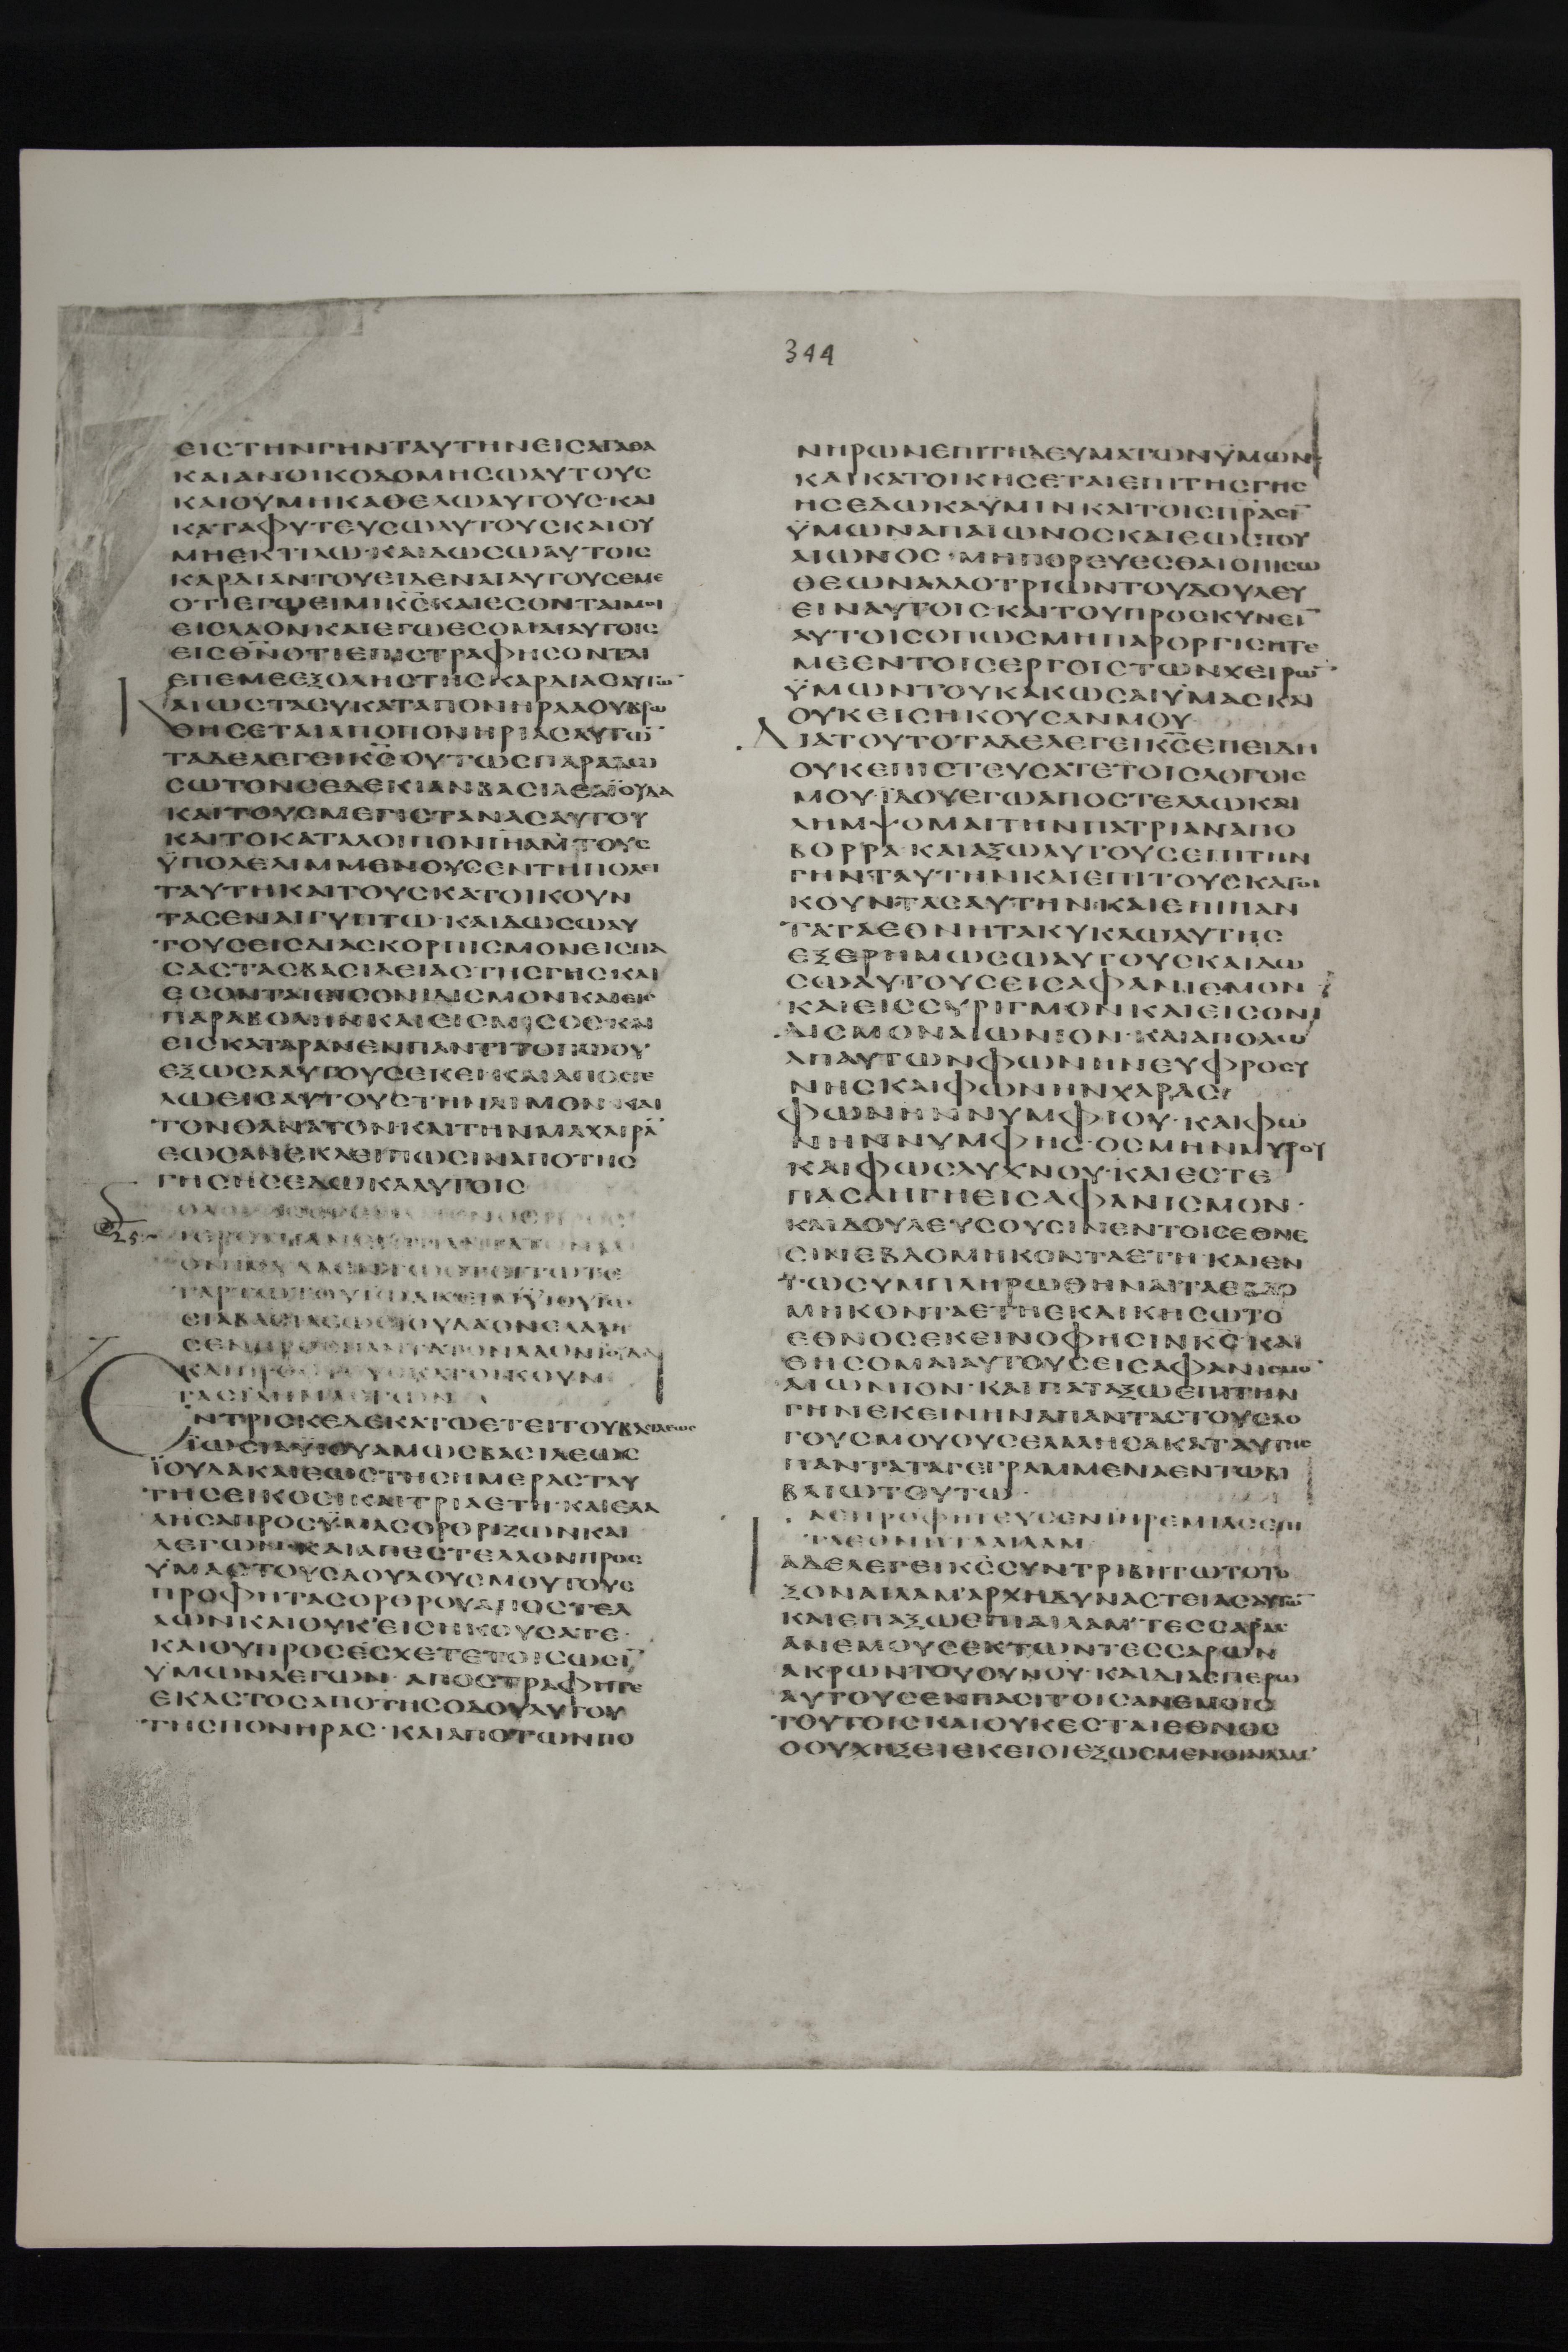 ΕΙCΤΗΝΓΗΝΤΑΥΤΗΝΕΙCΑΓΑΘΑ
ΚΑΙΑΝΟΙΚΟΔΟΜΗCΩΑΥΤΟΥC
ΚΑΙΟΥΜΗΚΑΘΕΛΩΑΥΤΟΥC·ΚΑΙ
ΚΑΤΑΦΥΤΕΥCΩΑΥΤΟΥCΚΑΙΟΥ
ΜΗΕΚΤΙΛΩ·ΚΑΙΔΩCΩΑΥΤΟΙC
ΚΑΡΔΙΑΝΤΟΥΕΙΔΕΝΑΙΑΥΤΟΥCΕΜΕ
ΟΤΙΕΓΩΕΙΜΙΚ̅C̅ΚΑΙΕCΟΝΤΑΙΜΟΙ
ΕΙCΛΑΟΝ·ΚΑΙΕΓΩΕCΟΜΑΙΑΥΤΟΙC
ΕΙCΘ̅Ν̅ΟΤΙΕΠΙCΤΡΑΦΗCΟΝΤΑΙ
ΕΠΕΜΕΕΞΟΛΗCΤΗCΚΑΡΔΙΑCΑΥΤΩ̅
ΚΑΙΩCΤΑCΥΚΑΤΑΠΟΝΗΡΑΑΟΥΒΡΩ
ΘΗCΕΤΑΙΑΠΟΠΟΝΗΡΙΑCΑΥΤΩ̅
ΤΑΔΕΛΕΓΕΙΚ̅C̅ΟΥΤΩCΠΑΡΑΔΩ
CΩΤΟΝCΕΔΕΚΙΑΝΒΑCΙΛΕΑΪΟΥΔΑ
ΚΑΙΤΟΥCΜΕΓΙCΤΑΝΑCΑΥΤΟΥ
ΚΑΙΤΟΚΑΤΑΛΟΙΠΟΝΪΛΗΜΤΟΥC
ΫΠΟΛΕΛΙΜΜΕΝΟΥCΕΝΤΗΠΟΛΕΙ
ΤΑΥΤΗΚΑΙΤΟΥCΚΑΤΟΙΚΟΥΝ
ΤΑCΕΝΑΙΓΥΠΤΩ·ΚΑΙΔΩCΩΑΥ
ΤΟΥCΕΙCΔΙΑCΚΟΡΠΙCΜΟΝΕΙCΠΑ
CΑCΤΑCΒΑCΙΛΕΙΑCΤΗCΓΗCΚΑΙ
ΕCΟΝΤΑΙΕΙCΟΝΙΔΙCΜΟΝΚΑΙΕΙC
ΠΑΡΑΒΟΛΗΝΚΑΙΕΙCΜΙCΟCΚΑΙ
ΕΙCΚΑΤΑΡΑΝΕΝΠΑΝΤΙΤΟΠΩΟΥ
ΕΞΩCΑΑΥΤΟΥCΕΚΕΙΚΑΙΑΠΟCΤΕ
ΛΩΕΙCΑΥΤΟΥCΤΗΝΛΙΜΟΝ·ΚΑΙ
ΤΟΝΘΑΝΑΤΟΝΚΑΙΤΗΝΜΑΧΑΙΡΑ̅
ΕΩCΑΝΕΚΛΕΙΠΩCΙΝΑΠΟΤΗC
ΓΗCΗCΕΔΩΚΑΑΥΤΟΙC
25
ΕΝΤΡΙCΚΕΔΕΚΑΤΩΕΤΕΙΤΟΥΒΑCΙΛΕΩC
ΪΩCΙΑΥΪΟΥΑΜΩCΒΑCΙΛΕΩC
ΪΟΥΔΑΚΑΙΕΩCΤΗCΗΜΕΡΑCΤΑΥ
ΤΗCΕΙΚΟCΙΚΑΙΤΡΙΑΕΤΗ·ΚΑΙΕΛΑ
ΛΗCΑΠΡΟCΫΜΑCΟΡΟΡΙΖΩΝΚΑΙ
ΛΕΓΩΝ·ΚΑΙΑΠΕCΤΕΛΛΟΝΠΡΟC
ΫΜΑCΤΟΥCΔΟΥΛΟΥCΜΟΥΤΟΥC
ΠΡΟΦΗΤΑCΟΡΟΡΟΥΑΠΟCΤΕΛ
ΛΩΝΚΑΙΟΥΚΕΙCΗΚΟΥCΑΤΕ·
ΚΑΙΟΥΠΡΟCΕCΧΕΤΕΤΟΙCΩCΙ̅
ΫΜΩΝΛΕΓΩΝ·ΑΠΟCΤΡΑΦΗΤΕ
ΕΚΑCΤΟCΑΠΟΤΗCΟΔΟΥΑΥΤΟΥ
ΤΗCΠΟΝΗΡΑC·ΚΑΙΑΠΟΤΩΝΠΟ
344
ΝΗΡΩΝΕΠΙΤΗΔΕΥΜΑΤΩΝΫΜΩΝ
ΚΑΙΚΑΤΟΙΚΗCΕΤΑΙΕΠΙΤΗCΓΗC
ΗCΕΔΩΚΑΫΜΙΝΚΑΙΤΟΙCΠΡΑCΙ̅
ΫΜΩΝΑΠΑΙΩΝΟCΚΑΙΕΩCΤΟΥ
ΑΙΩΝΟC·ΜΗΠΟΡΕΥΕCΘΑΙΟΠΙCΩ
ΘΕΩΝΑΛΛΟΤΡΙΩΝΤΟΥΔΟΥΛΕΥ
ΕΙΝΑΥΤΟΙCΚΑΙΤΟΥΠΡΟCΚΥΝΕΙ̅
ΑΥΤΟΙCΟΠΩCΜΗΠΑΡΟΡΓΙCΗΤΕ
ΜΕΕΝΤΟΙCΕΡΓΟΙCΤΩΝΧΕΙΡΩ̅
ΫΜΩΝΤΟΥΚΑΚΩCΑΙΫΜΑCΚΑΙ
ΟΥΚΕΙCΗΚΟΥCΑΝΜΟΥ·
ΔΙΑΤΟΥΤΟΤΑΔΕΛΕΓΕΙΚ̅C̅ΕΠΕΙΔΗ
ΟΥΚΕΠΙCΤΕΥCΑΤΕΤΟΙCΛΟΓΟΙC
ΜΟΥ·ΪΔΟΥΕΓΩΑΠΟCΤΕΛΛΩΚΑΙ
ΛΗΜΨΟΜΑΙΤΗΝΠΑΤΡΙΑΝΑΠΟ
ΒΟΡΡΑ·ΚΑΙΑΞΩΑΥΤΟΥCΕΠΙΤΗΝ
ΓΗΝΤΑΥΤΗΝΚΑΙΕΠΙΤΟΥCΚΑΤΟΙ
ΚΟΥΝΤΑCΑΥΤΗΝ·ΚΑΙΕΠΙΠΑΝ
ΤΑΤΑΕΘΝΗΤΑΚΥΚΛΩΑΥΤΗC
ΕΞΕΡΗΜΩCΩΑΥΤΟΥCΚΑΙΔΩ
CΩΑΥΤΟΥCΕΙCΑΦΑΝΙCΜΟΝ
ΚΑΙΕΙCCΥΡΙΓΜΟΝΚΑΙΕΙCΟΝΙ
ΔΙCΜΟΝΑΙΩΝΙΟΝ·ΚΑΙΑΠΟΛΩ
ΑΠΑΥΤΩΝΦΩΝΗΝΕΥΦΡΟCΥ
ΝΗCΚΑΙΦΩΝΗΝΧΑΡΑC·
ΦΩΝΗΝΝΥΜΦΙΟΥ·ΚΑΙΦΩ
ΝΗΝΝΥΜΦΗC·ΟCΜΗΝΜΥΡΟΥ
ΚΑΙΦΩCΛΥΧΝΟΥ·ΚΑΙΕCΤΕ
ΠΑCΑΗΓΗΕΙCΑΦΑΝΙCΜΟΝ·
ΚΑΙΔΟΥΛΕΥCΟΥCΙΝΕΝΤΟΙCΕΘΝΕ
CΙΝΕΒΔΟΜΗΚΟΝΤΑΕΤΗ·ΚΑΙΕΝ
ΤΩCΥΜΠΛΗΡΩΘΗΝΑΙΤΑΕΒΔΟ
ΜΗΚΟΝΤΑΕΤΗΕΚΔΙΚΗCΩΤΟ
ΕΘΝΟCΕΚΕΙΝΟΦΗCΙΝΚ̅C̅ΚΑΙ
ΘΗCΟΜΑΙΑΥΤΟΥCΕΙCΑΦΑΝΙCΜΟ̅
ΑΙΩΝΙΟΝ·ΚΑΙΠΑΤΑΞΩΕΠΙΤΗΝ
ΓΗΝΕΚΕΙΝΗΝΑΠΑΝΤΑCΤΟΥCΛΟ
ΓΟΥCΜΟΥΟΥCΕΛΑΛΗCΑΚΑΤΑΥΤΗC
ΠΑΝΤΑΤΑΓΕΓΡΑΜΜΕΝΑΕΝΤΩΒΙ
ΒΛΙΩΤΟΥΤΩ·
ΤΑΕΘΝΗΤΑΑΙΛΑΜ
ΑΔΕΛΕΓΕΙΚ̅C̅CΥΝΤΡΙΒΗΤΩΤΟΤΟ
ΞΟΝΑΙΛΑΜ'ΑΡΧΗΔΥΝΑCΤΕΙΑCΑΥΤΩ̅
ΚΑΙΕΠΑΞΩΕΠΙΑΙΛΑΜ'ΤΕCCΑΡΑC
ΑΝΕΜΟΥCΕΚΤΩΝΤΕCCΑΡΩΝ
ΑΚΡΩΝΤΟΥΟΥΝΟΥ·ΚΑΙΔΙΑCΠΕΡΩ
ΑΥΤΟΥCΕΝΠΑCΙΤΟΙCΑΝΕΜΟΙC
ΤΟΥΤΟΙCΚΑΙΟΥΚΕCΤΑΙΕΘΝΟC
ΟΟΥΧΗΞΕΙΕΚΕΙΟΙΕΞΩCΜΕΝΟΙΑΙΛΑΜ'